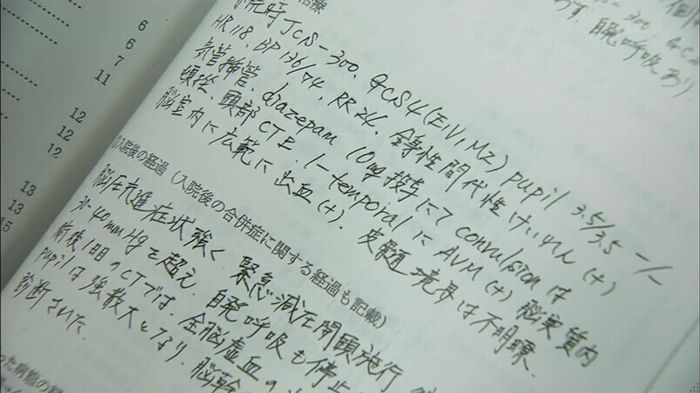 6
6
7
11
12
12
12
13
13
15
呼吸あり
治療
JCS-300. GCS4(E1V1M2) pupil 3.5/3.5 -/-
HR118. BP136/74. RR26. 全身性間代性けいれん(+)
気管挿管. diazepam 10mg投与にて convulsion は
頭部CTE. l-temporal に AVM(+) 脳実質内
脳室内に広範に出血(+). 皮髄境界は不明瞭.
入院後の経過(入院後の合併症に関する経過も記載)
脳圧亢進症状強く 緊急減圧開頭施行
40mmHgを超え. 自発呼吸も停止
術後1日目のCTでは. 全脳虚血の
pupilは強散大となり. 脳幹
診断された.